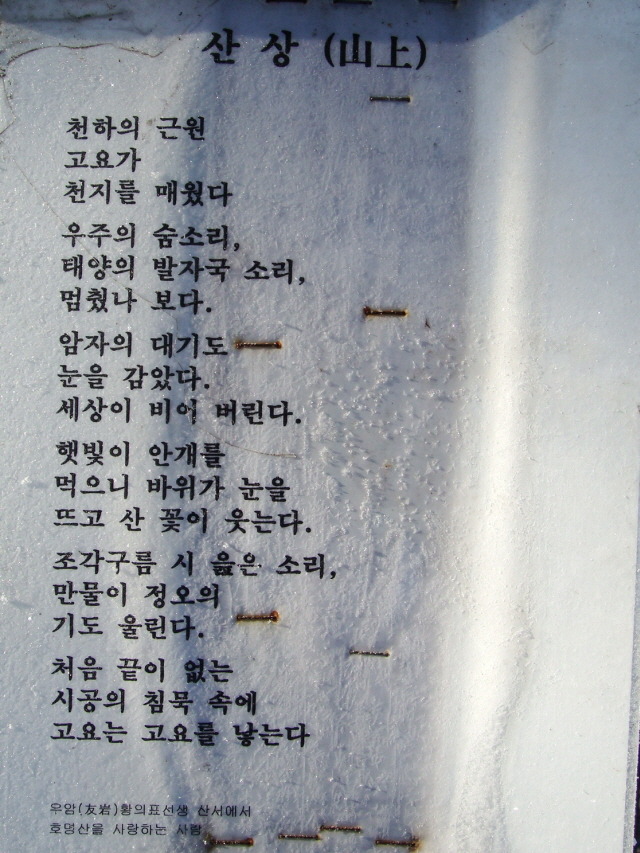 산 상 (山上)
천하의 근원
고요가
천지를 매웠다
우주의 숨소리,
태양의 발자국 소리,
멈췄나 보다.
암자의 대기도
눈을 감았다.
세상이 비어 버린다.
햇빛이 안개를
먹으니 바위가 눈을
뜨고 산 꽃이 웃는다.
조각구름 시 읊은 소리,
만물이 정오의
기도 올린다.
처음 끝이 없는
시공의 침묵 속에
고요는 고요를 낳는다
우암(友岩)황의표선생 산서에서
호명산을 사랑하는 사람